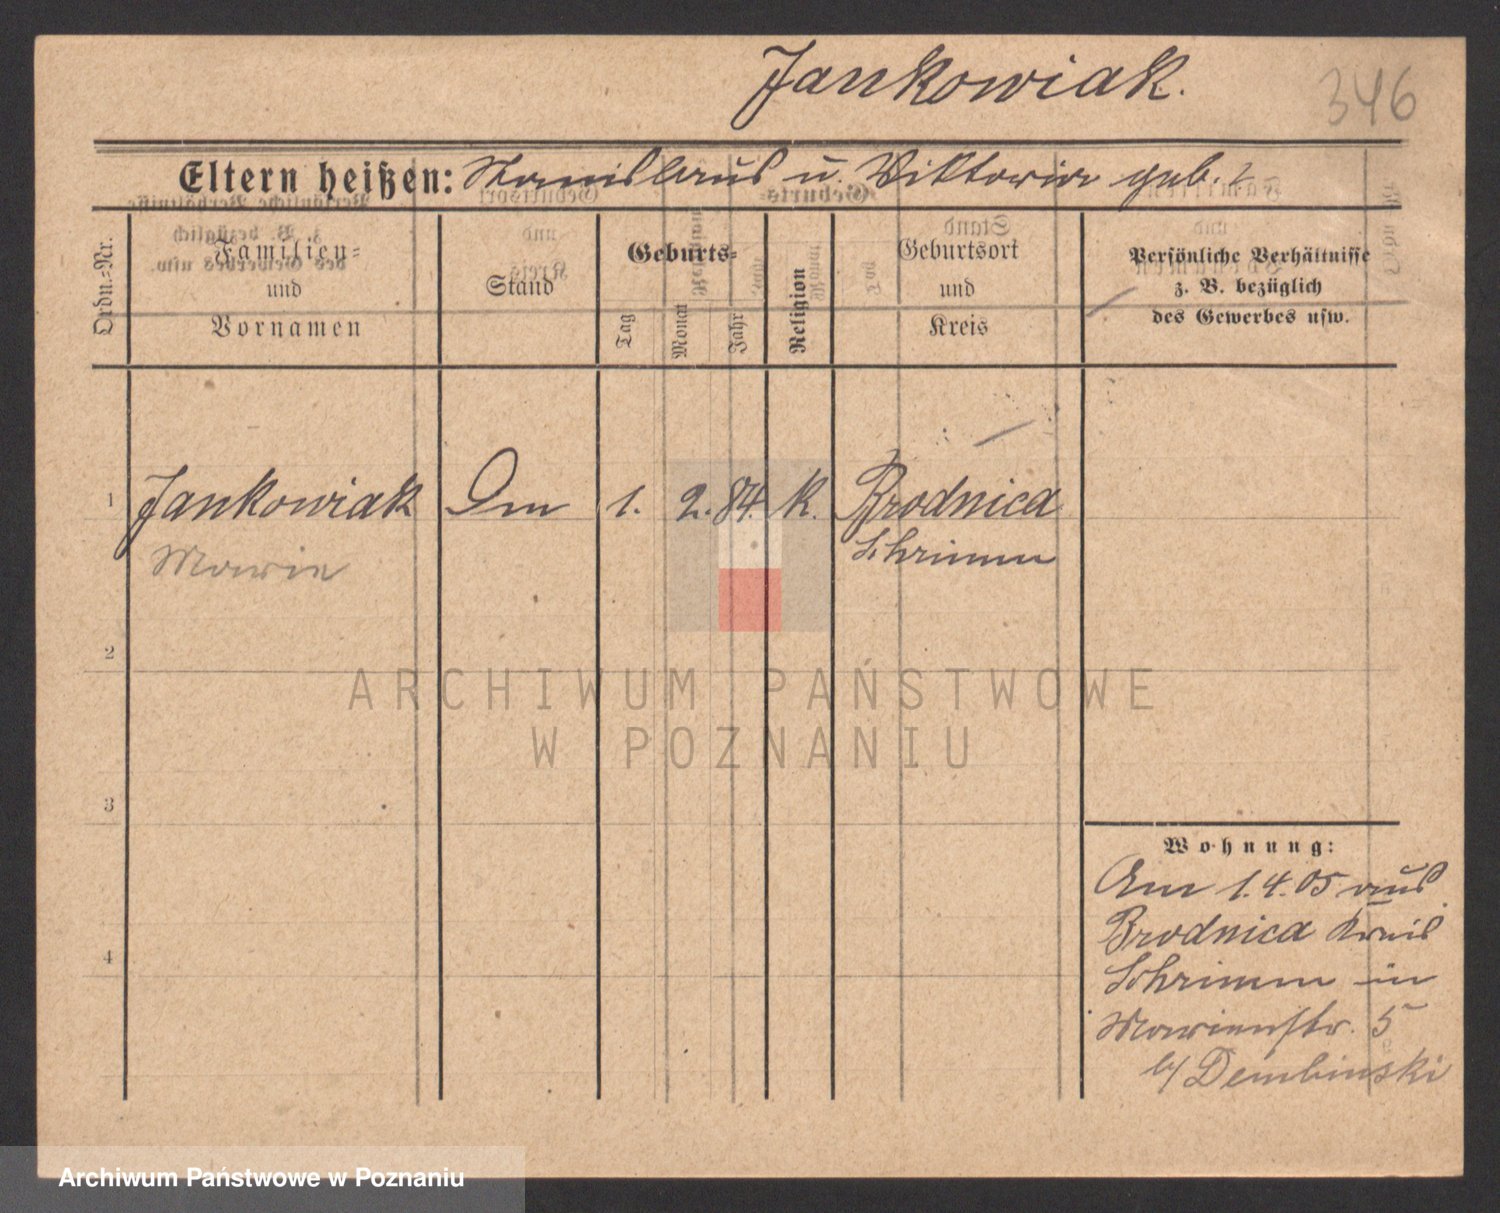 Jankowiak.
346
Eltern heißen: Stanislaus u. Viktoria geb. ?
Ordn.-Nr.
Familien-
und
Vornamen
Stand
Geburts-
Tag
Monat
Jahr
Religion
Geburtsort
und
Kreis
Persönliche Verhältnisse
z. B. bezüglich
des Gewerbes usw.
1 Jankowiak 1. 2. 84. K. Brodnica
Marie Schrimm
2
3
4
Wohnung:
Am 1.4.05 aus
Brodnica Kreis
Schrimm in
Marienstr. 5
b/ Dembinski
ARCHIWUM PAŃSTWOWE
W POZNANIU
Archiwum Państwowe w Poznaniu